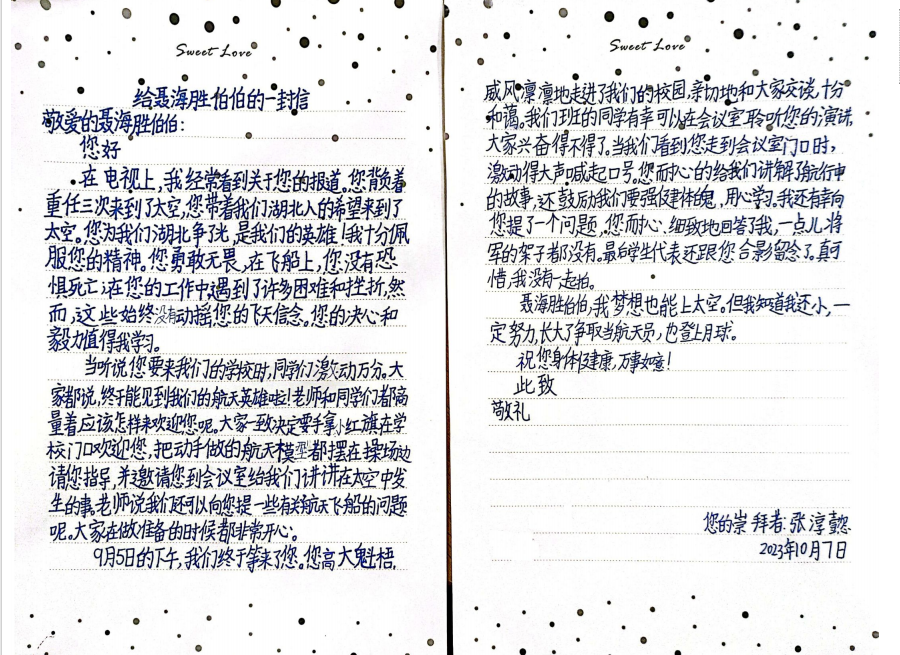 Sweet Love
给聂海胜伯伯的一封信
敬爱的聂海胜伯伯：
您好
在电视上，我经常看到关于您的报道。您背负着
重任三次来到了太空，您带着我们湖北人的希望来到了
太空。您为我们湖北争了光，是我们的英雄！我十分佩
服您的精神。您勇敢无畏，在飞船上，您没有恐
惧死亡；在您的工作中遇到了许多困难和挫折，然
而，这些始终没有动摇您的飞天信念。您的决心和
毅力值得我学习。
当听说您要来我们的学校时，同学们激动万分。大
家都说，终于能见到我们的航天英雄啦！老师和同学们都商
量着应该怎样来欢迎您呢。大家一致决定要手拿小红旗在学
校门口欢迎您，把动手做的航天模型都摆在操场边
请您指导，并邀请您到会议室给我们讲讲在太空中发
生的事。老师说我们还可以向您提一些有关航天飞船的问题
呢。大家在做准备的时候都非常开心。
9月5日的下午，我们终于等来了您。您高大魁梧，
Sweet Love
威风凛凛地走进了我们的校园，亲切地和大家交谈，十分
和蔼。我们班的同学有幸可以在会议室聆听您的演讲，
大家兴奋得不得了。当我们看到您走到会议室门口时，
激动得大声喊起口号。您耐心的给我们讲解了航行中
的故事，还鼓励我们要强健体魄，用心学习。我还有幸向
您提了一个问题，您耐心、细致地回答了我，一点儿将
军的架子都没有。最后学生代表还跟您合影留念了，真可
惜，我没有一起拍。
聂海胜伯伯，我梦想也能上太空。但我知道我还小，一
定努力，长大了争取当航天员，也登上月球。
祝您身体健康，万事如意！
此致
敬礼
您的崇拜者：张淳懿
2023年10月7日